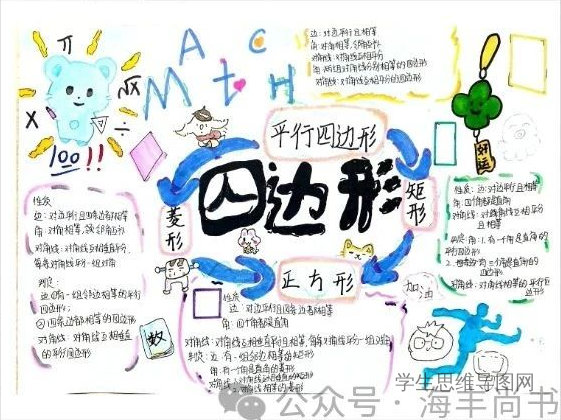 π
√x
x
÷
100!!
M A t C H
边:对边平行且相等
角:对角相等,邻角互补
对角线:对角线互相平分
对角线:对角线互相平分的四边形
平行四边形
四边形
菱形
矩形
正方形
好运
性质:
边:对边平行且四条边都相等
角:对角相等,邻角互补
对角线:对角线互相垂直平分,
每条对角线平分一组对角
判定:
边:①有一组邻边相等的平行
四边形;
②四条边都相等的四边形
对角线:对角线互相垂直
的平行四边形
性质:边:对边平行且相等
角:四个角都是直角
对角线:对角线互相平分
且相等
判定:角:1.有一个角是直角的
平行四边形
四边形
对角线:对角线相等的平行四边形
加油
数
性质:
边:对边平行四条边都相等
角:四个角都是直角
对角线:对角线互相垂直平分且相等,每条对角线平分一组对角
判定:边:有一组邻边相等的矩形
角:有一个角是直角的菱形
学生思维导图网
公众号·海丰尚书